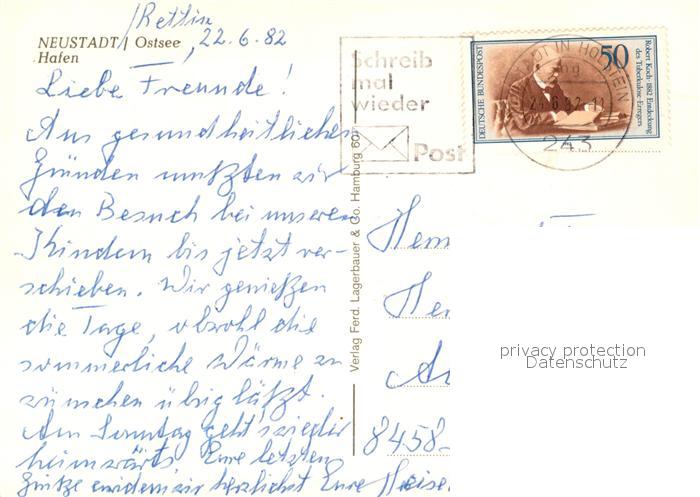 /Rettin
NEUSTADT / Ostsee
Hafen
, 22.6.82
Liebe Freunde!
Aus gesundheitlichen
Gründen mußten wir
den Besuch bei unseren
Kindern bis jetzt ver-
schieben. Wir genießen
die Tage, obwohl die
sommerliche Wärme zu
wünschen übrig läßt.
Am Sonntag geht's wieder
heimwärts. Eure letzten
Grüße erwidern wir herzlichst Eure
Schreib
mal
wieder
Post
DEUTSCHE BUNDESPOST
50
Robert Koch 1882 Entdeckung
des Tuberkulose-Erregers
IN HOLSTEIN
243
Verlag Ferd. Lagerbauer & Co. Hamburg 60
8458-
privacy protection
Datenschutz